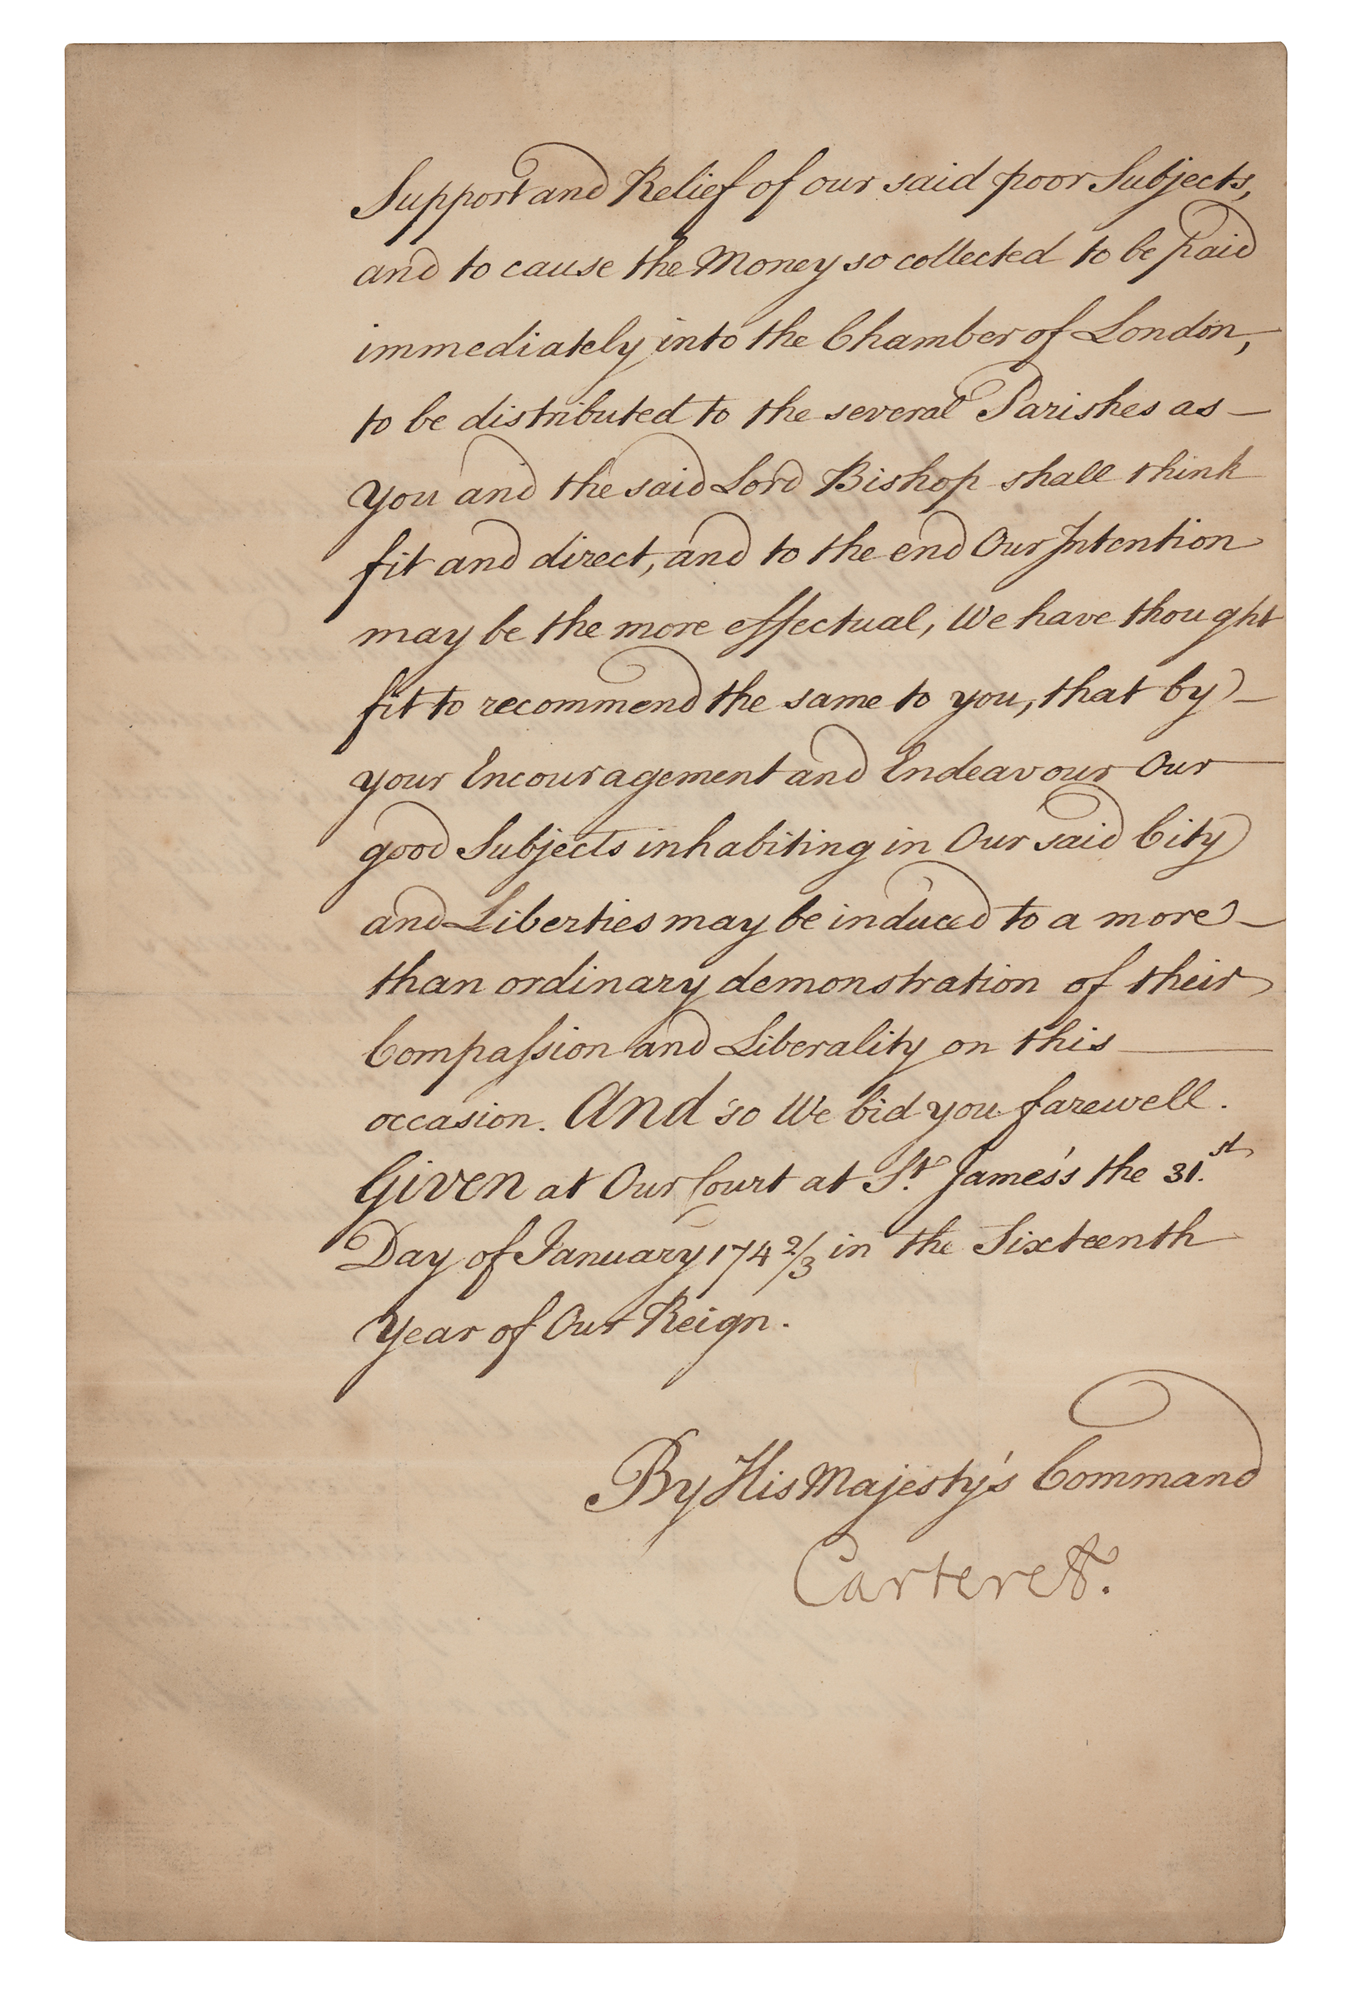 Support and Relief of our said poor Subjects,
and to cause the Money so collected to be paid
immediately into the Chamber of London,
to be distributed to the several Parishes as —
You and the said Lord Bishop shall think
fit and direct, and to the end Our Intention
may be the more effectual, We have thought
fit to recommend the same to you, that by —
your Encouragement and Endeavour Our
good Subjects inhabiting in Our said City
and Liberties may be induced to a more —
than ordinary demonstration of their
Compaſsion and Liberality on this —
occasion. And so We bid you farewell.
Given at Our Court at St. James's the 31.st
Day of January 174 2/3 in the Sixteenth
Year of Our Reign.
By His Majesty's Command
Carteret.